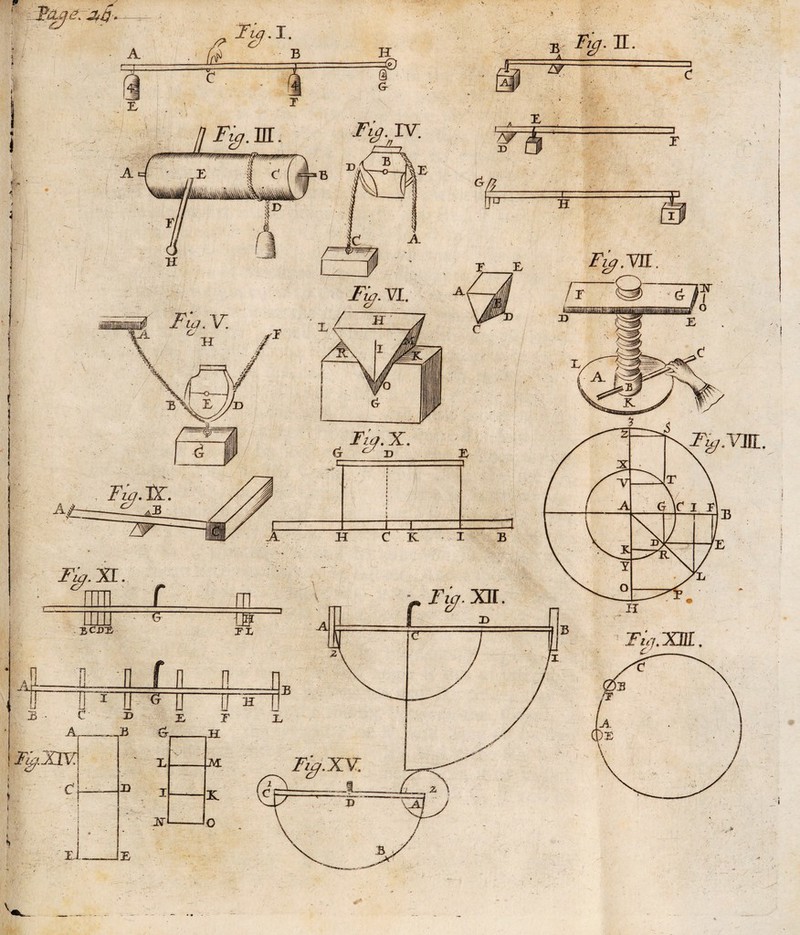 Page. 26.
Fig. I.
A B H
C
4 4
G
E F
Fig. II.
B
A C
E
D F
G
H I
Fig. III.
A E C B
D
F
H
Fig. IV.
D B E
C A
Fig. V.
A H F
B E D
G
Fig. VI.
L H M
R I K
O
G
F E
A B
C D
Fig. VII.
F G N
O
D E
L C
A B
K
Fig. VIII.
3
Z S
X
V T
A G C I F B
D E
K R
Y L
O P
H
Fig. IX.
A B
C
Fig. X.
G D E
A H C K I B
Fig. XI.
G H
B C D E F L
A B
I G H
B C D E F L
Fig. XII.
A C D B
2 I
Fig. XIII.
C
B
F
A
E
Fig. XIV.
A B G H
L M
C D I K
N O
F E
Fig. XV.
1 2
C D A
B